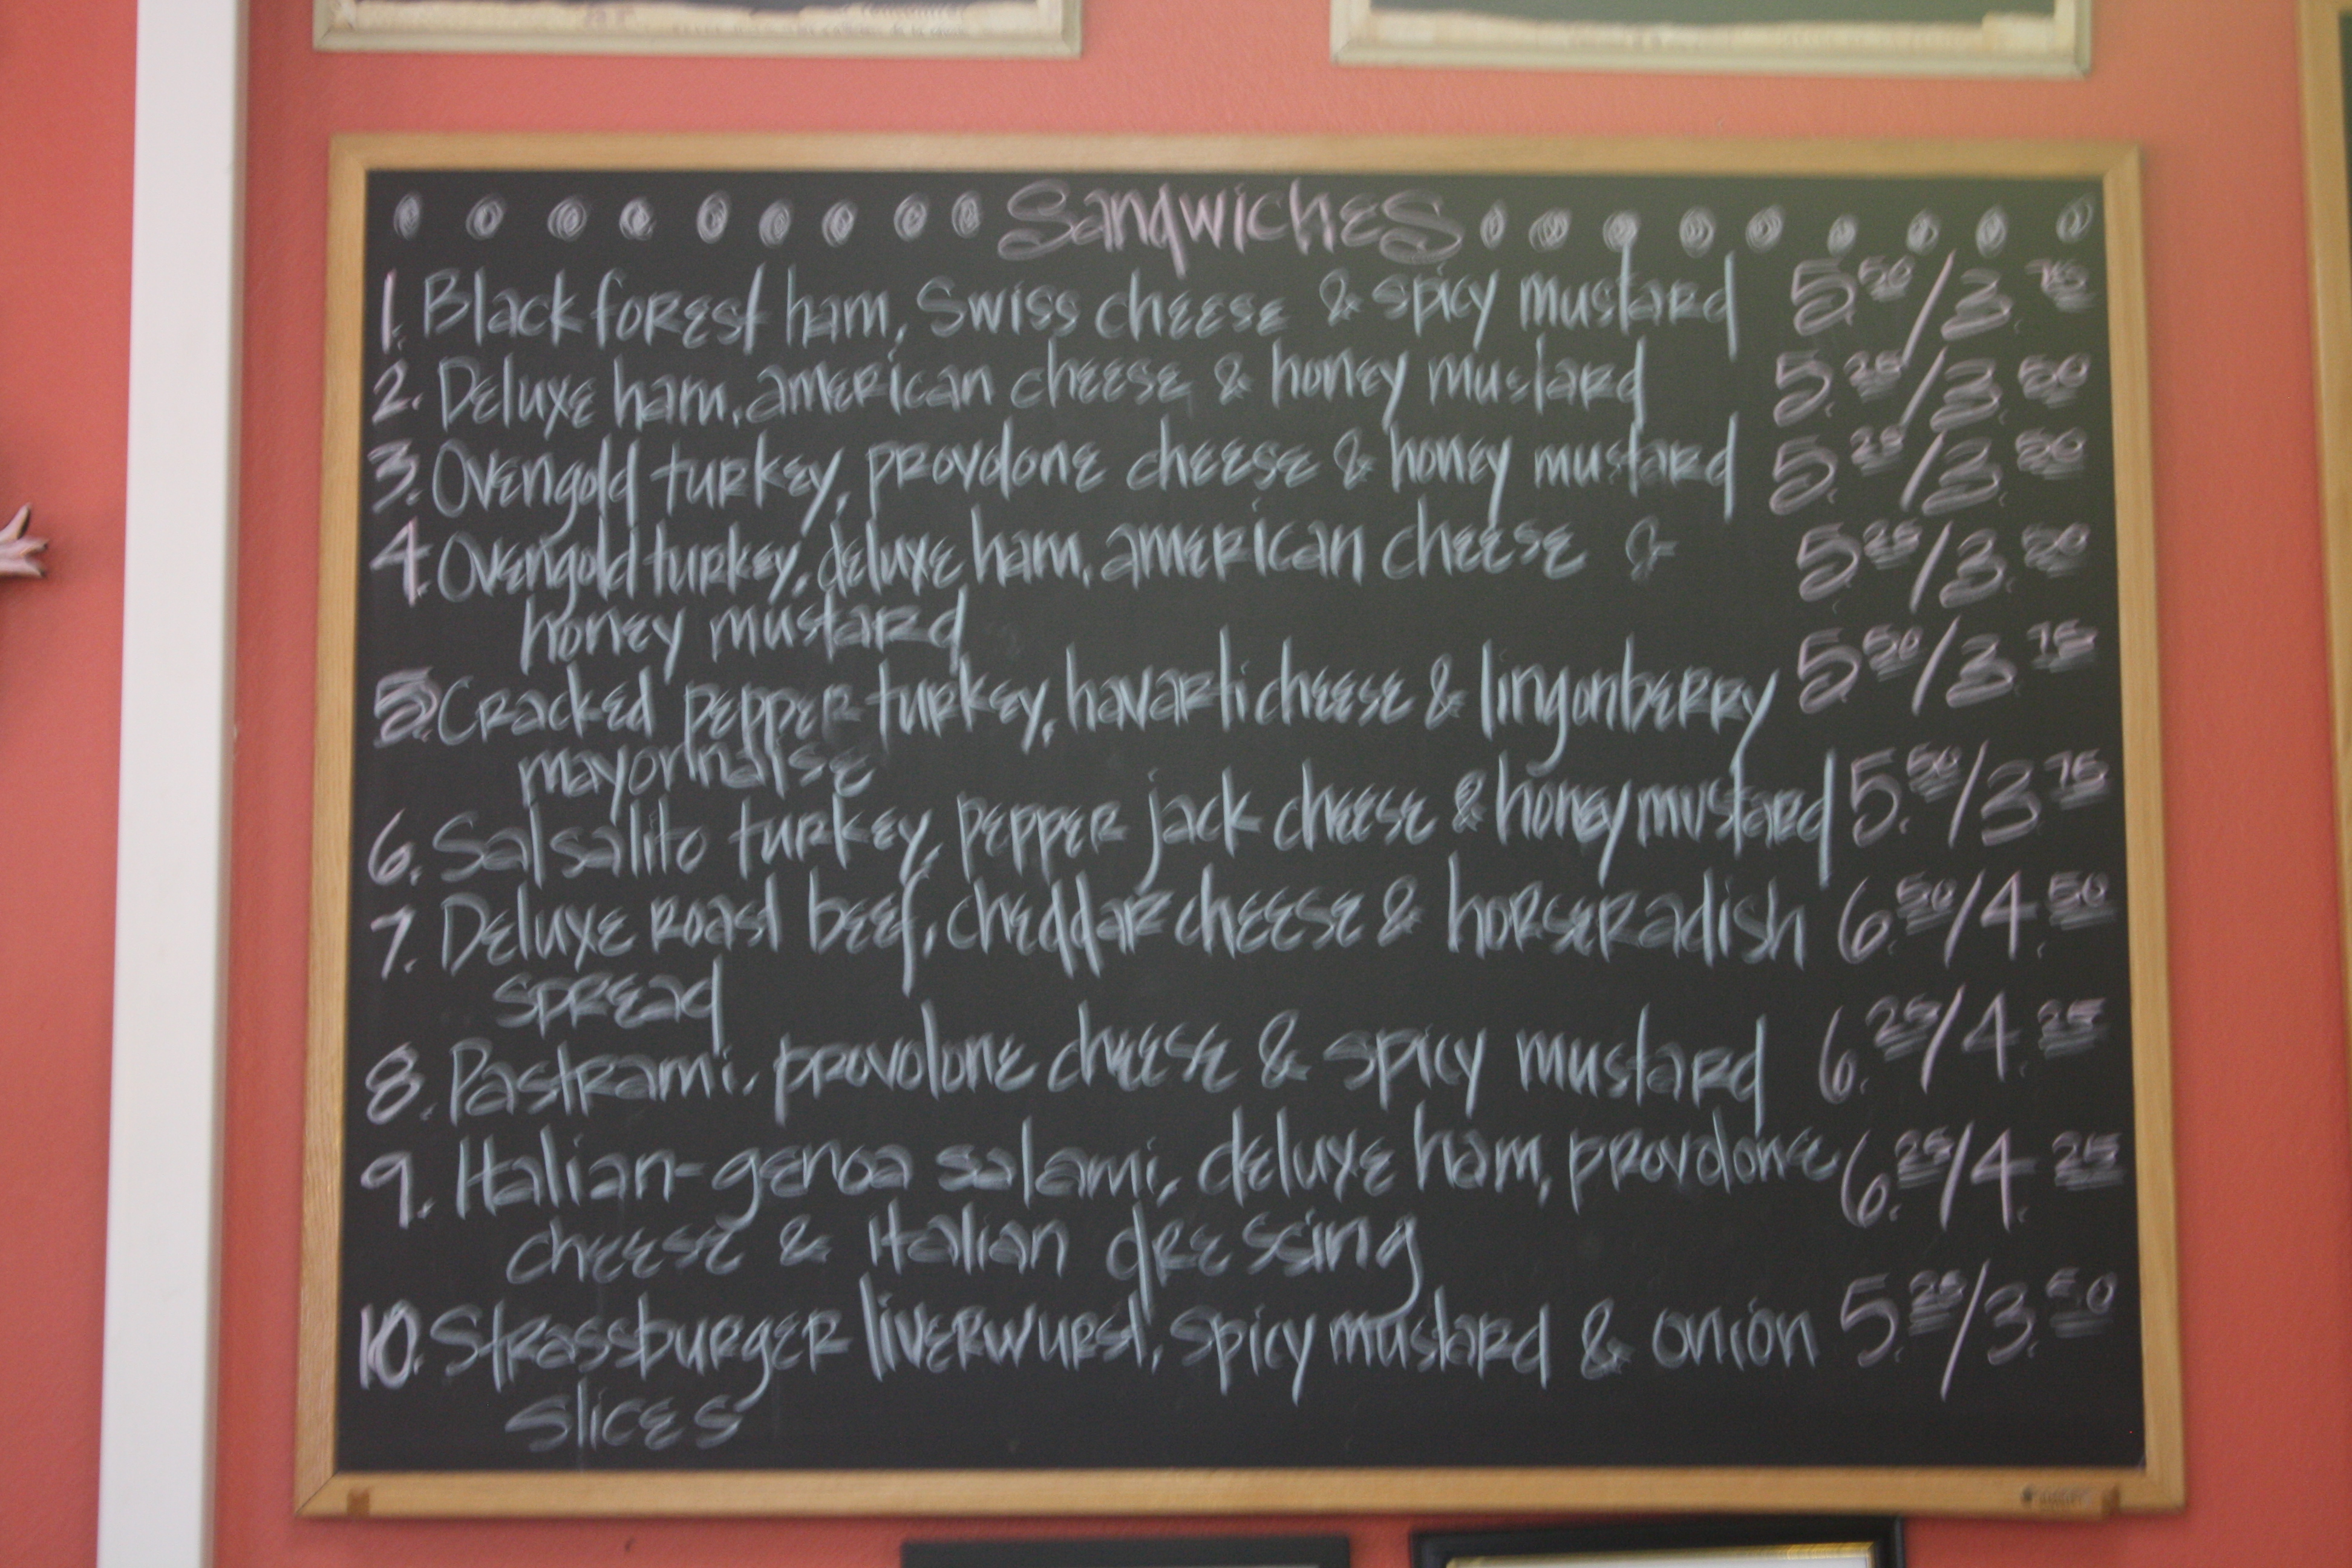 Sandwiches
1. Black forest ham, Swiss cheese & spicy mustard 5.50/3.75
2. Deluxe ham, american cheese & honey mustard 5.25/3.50
3. Ovengold turkey, provolone cheese & honey mustard 5.25/3.50
4. Ovengold turkey, deluxe ham, american cheese & 5.25/3.50
honey mustard
5. Cracked pepper turkey, havarti cheese & lingonberry 5.50/3.75
mayonnaise
6. Salsalito turkey, pepper jack cheese & honey mustard 5.50/3.75
7. Deluxe roast beef, cheddar cheese & horseradish 6.50/4.50
spread
8. Pastrami, provolone cheese & spicy mustard 6.25/4.25
9. Italian-genoa salami, deluxe ham, provolone 6.25/4.25
cheese & italian dressing
10. Strassburger liverwurst, spicy mustard & onion 5.25/3.50
slices